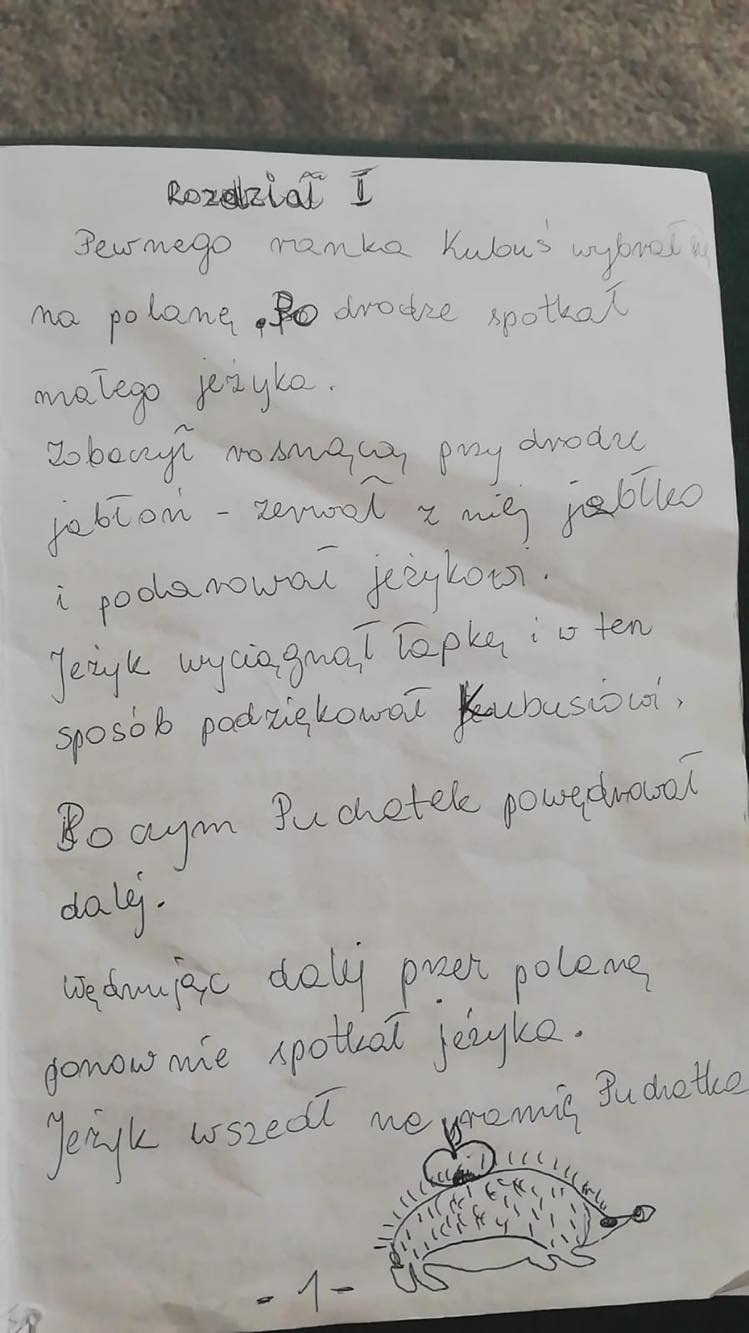 Rozdział I
Pewnego ranka Kubuś wybrał się
na polanę. Po drodze spotkał
małego jeżyka.
Zobaczył rosnącą przy drodze
jabłoń - zerwał z niej jabłko
i podarował jeżykowi.
Jeżyk wyciągnął łapkę i w ten
sposób podziękował Kubusiowi.
Po czym Puchatek powędrował
dalej.
Wędrując dalej przez polanę
ponownie spotkał jeżyka.
Jeżyk wszedł na ramię Puchatka
- 1 -